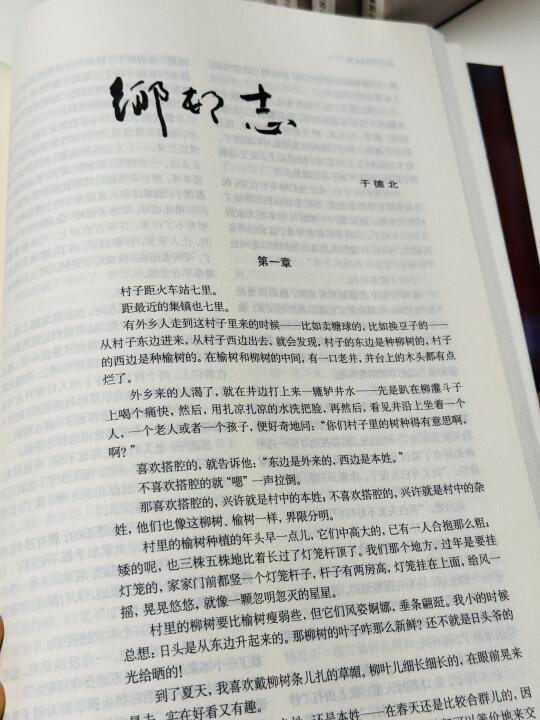 乡村志
于德北
第一章
村子距火车站七里。
距最近的集镇也七里。
有外乡人走到这村子里来的时候——比如卖糖球的,比如换豆子的——
从村子东边进来,从村子西边出去,就会发现,村子的东边是种柳树的,村子
的西边是种榆树的。在榆树和柳树的中间,有一口老井,井台上的木头都有点
烂了。
外乡来的人渴了,就在井边打上来一辘轳井水——先是趴在柳灌斗子
上喝个痛快,然后,用扎凉扎凉的水洗把脸,再然后,看见井沿上坐着一个
人,一个老人或者一个孩子,便好奇地问:“你们村子里的树种得有意思啊,
啊?”
喜欢搭腔的,就告诉他:“东边是外来的,西边是本姓。”
不喜欢搭腔的就“嗯”一声拉倒。
那喜欢搭腔的,兴许就是村中的本姓;不喜欢搭腔的,兴许就是村中的杂
姓,他们也像这柳树、榆树一样,界限分明。
村里的榆树种植的年头早一点儿,它们中高大的,已有一人合抱那么粗;
矮的呢,也三株五株地比着长过了灯笼杆顶了。我们那个地方,过年是要挂
灯笼的,家家门前都竖一个灯笼杆子,杆子有两房高,灯笼挂在上面,给风一
摇,晃晃悠悠,就像一颗忽明忽灭的星星。
村里的柳树要比榆树瘦弱些,但它们风姿婀娜,垂条翩跹。我小的时候
总想:日头是从东边升起来的,那柳树的叶子咋那么新鲜?还不就是日头爷的
光给晒的!
到了夏天,我喜欢戴柳树条儿扎的草帽。柳叶儿细长细长的,在眼前晃来
晃去,实在好看又有趣。